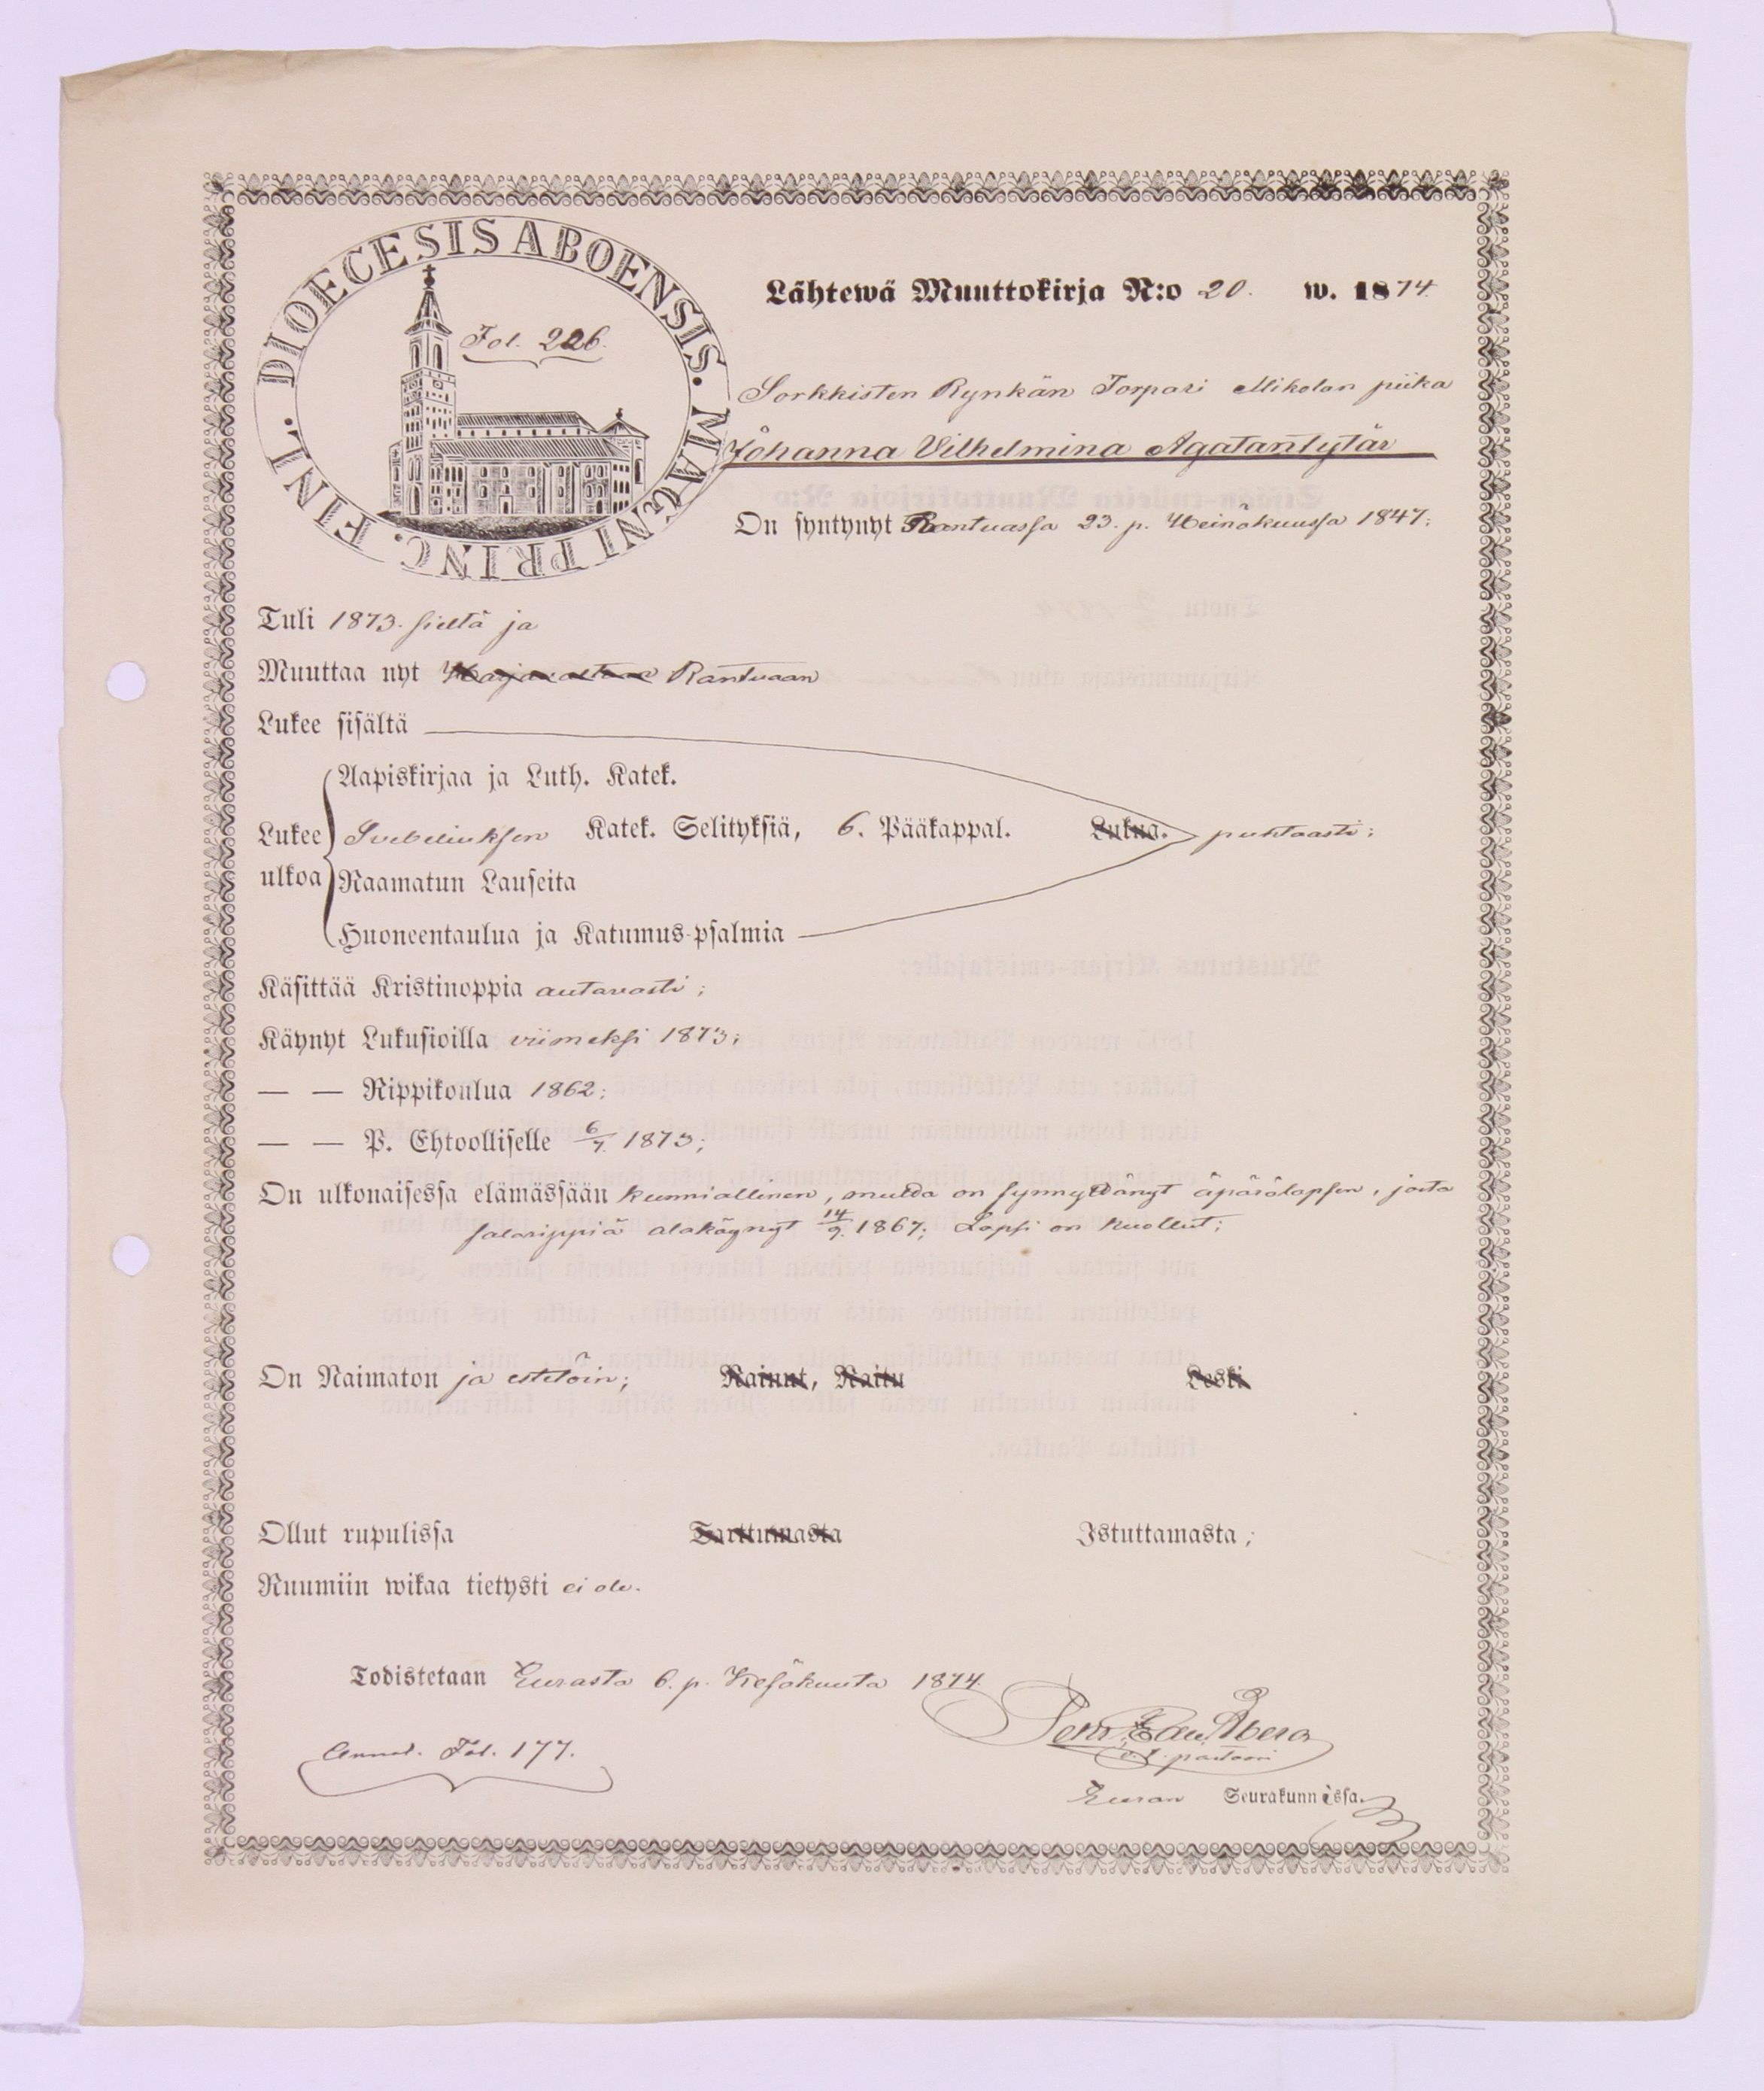 DIOECESIS ABOENSIS. MAGNI PRINC. FINL.
Fol. 226.
Lähtewä Muuttokirja N:o 20. w. 1874.
Sorkkisten Rynkän Torpari Mikolan piika
Johanna Vilhelmina Agatantytär
On syntynyt Rantuassa 23. p. Heinäkuussa 1847;
Tuli 1873. sieltä ja
Muuttaa nyt Rantuaan
Lukee sisältä
Aapiskirjaa ja Luth. Katek.
Lukee ulkoa Svebeliuksen Katek. Selityksiä, 6. Pääkappal. Lukua. puhtaasti;
Raamatun Lauseita
Huoneentaulua ja Katumus-psalmia
Käsittää Kristinoppia auttavasti;
Käynyt Lukusioilla viimeksi 1873;
— — Rippikoulua 1862;
— — P. Ehtoolliselle 6/7. 1873;
On ulkonaisessa elämässään kunniallinen, mutta on synnyttänyt äpärälapsen, josta
salarippiä alakäynyt 14/9. 1867; Lapsi on kuollut;
On Naimaton ja estetöin; Nainut, Naitu Leski
Ollut rupulissa Tarttumasta Istuttamasta;
Ruumiin wikaa tietysti ei ole.
Todistetaan Eurasta 6. p. Kesäkuuta 1874.
Annot. Fol. 177.
pastori
Euran Seurakunnassa.